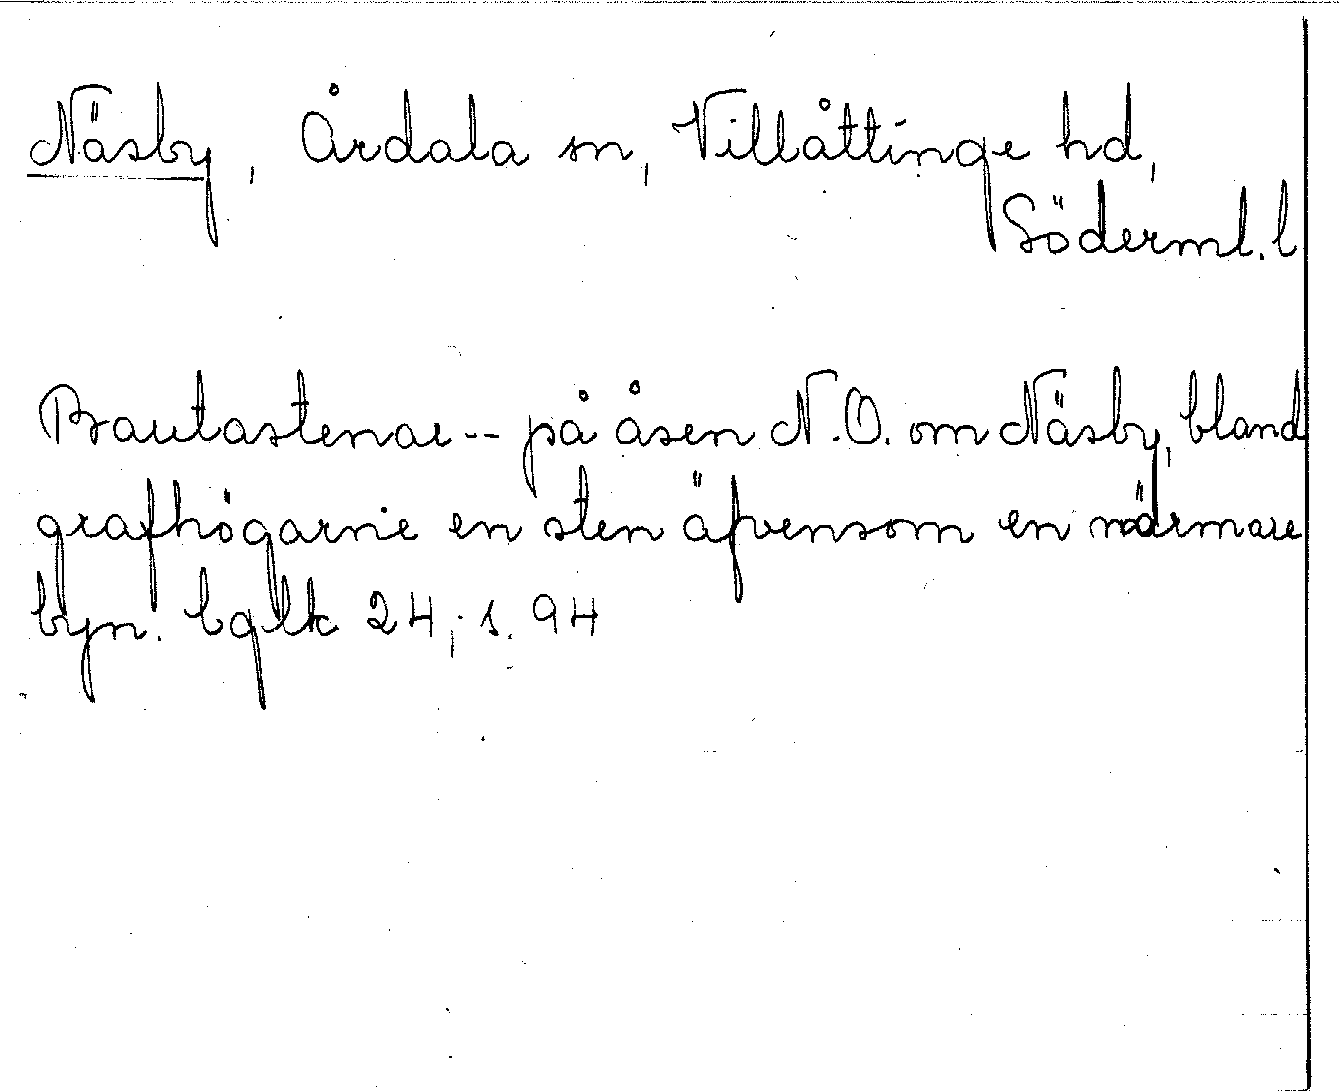 Näsby, Årdala sn, Villåttinge hd,
Söderml. l
Bautastenar -- på åsen N.O. om Näsby, bland
grafhögarne en sten äfvensom en närmare
byn. bglk 24, s. 94